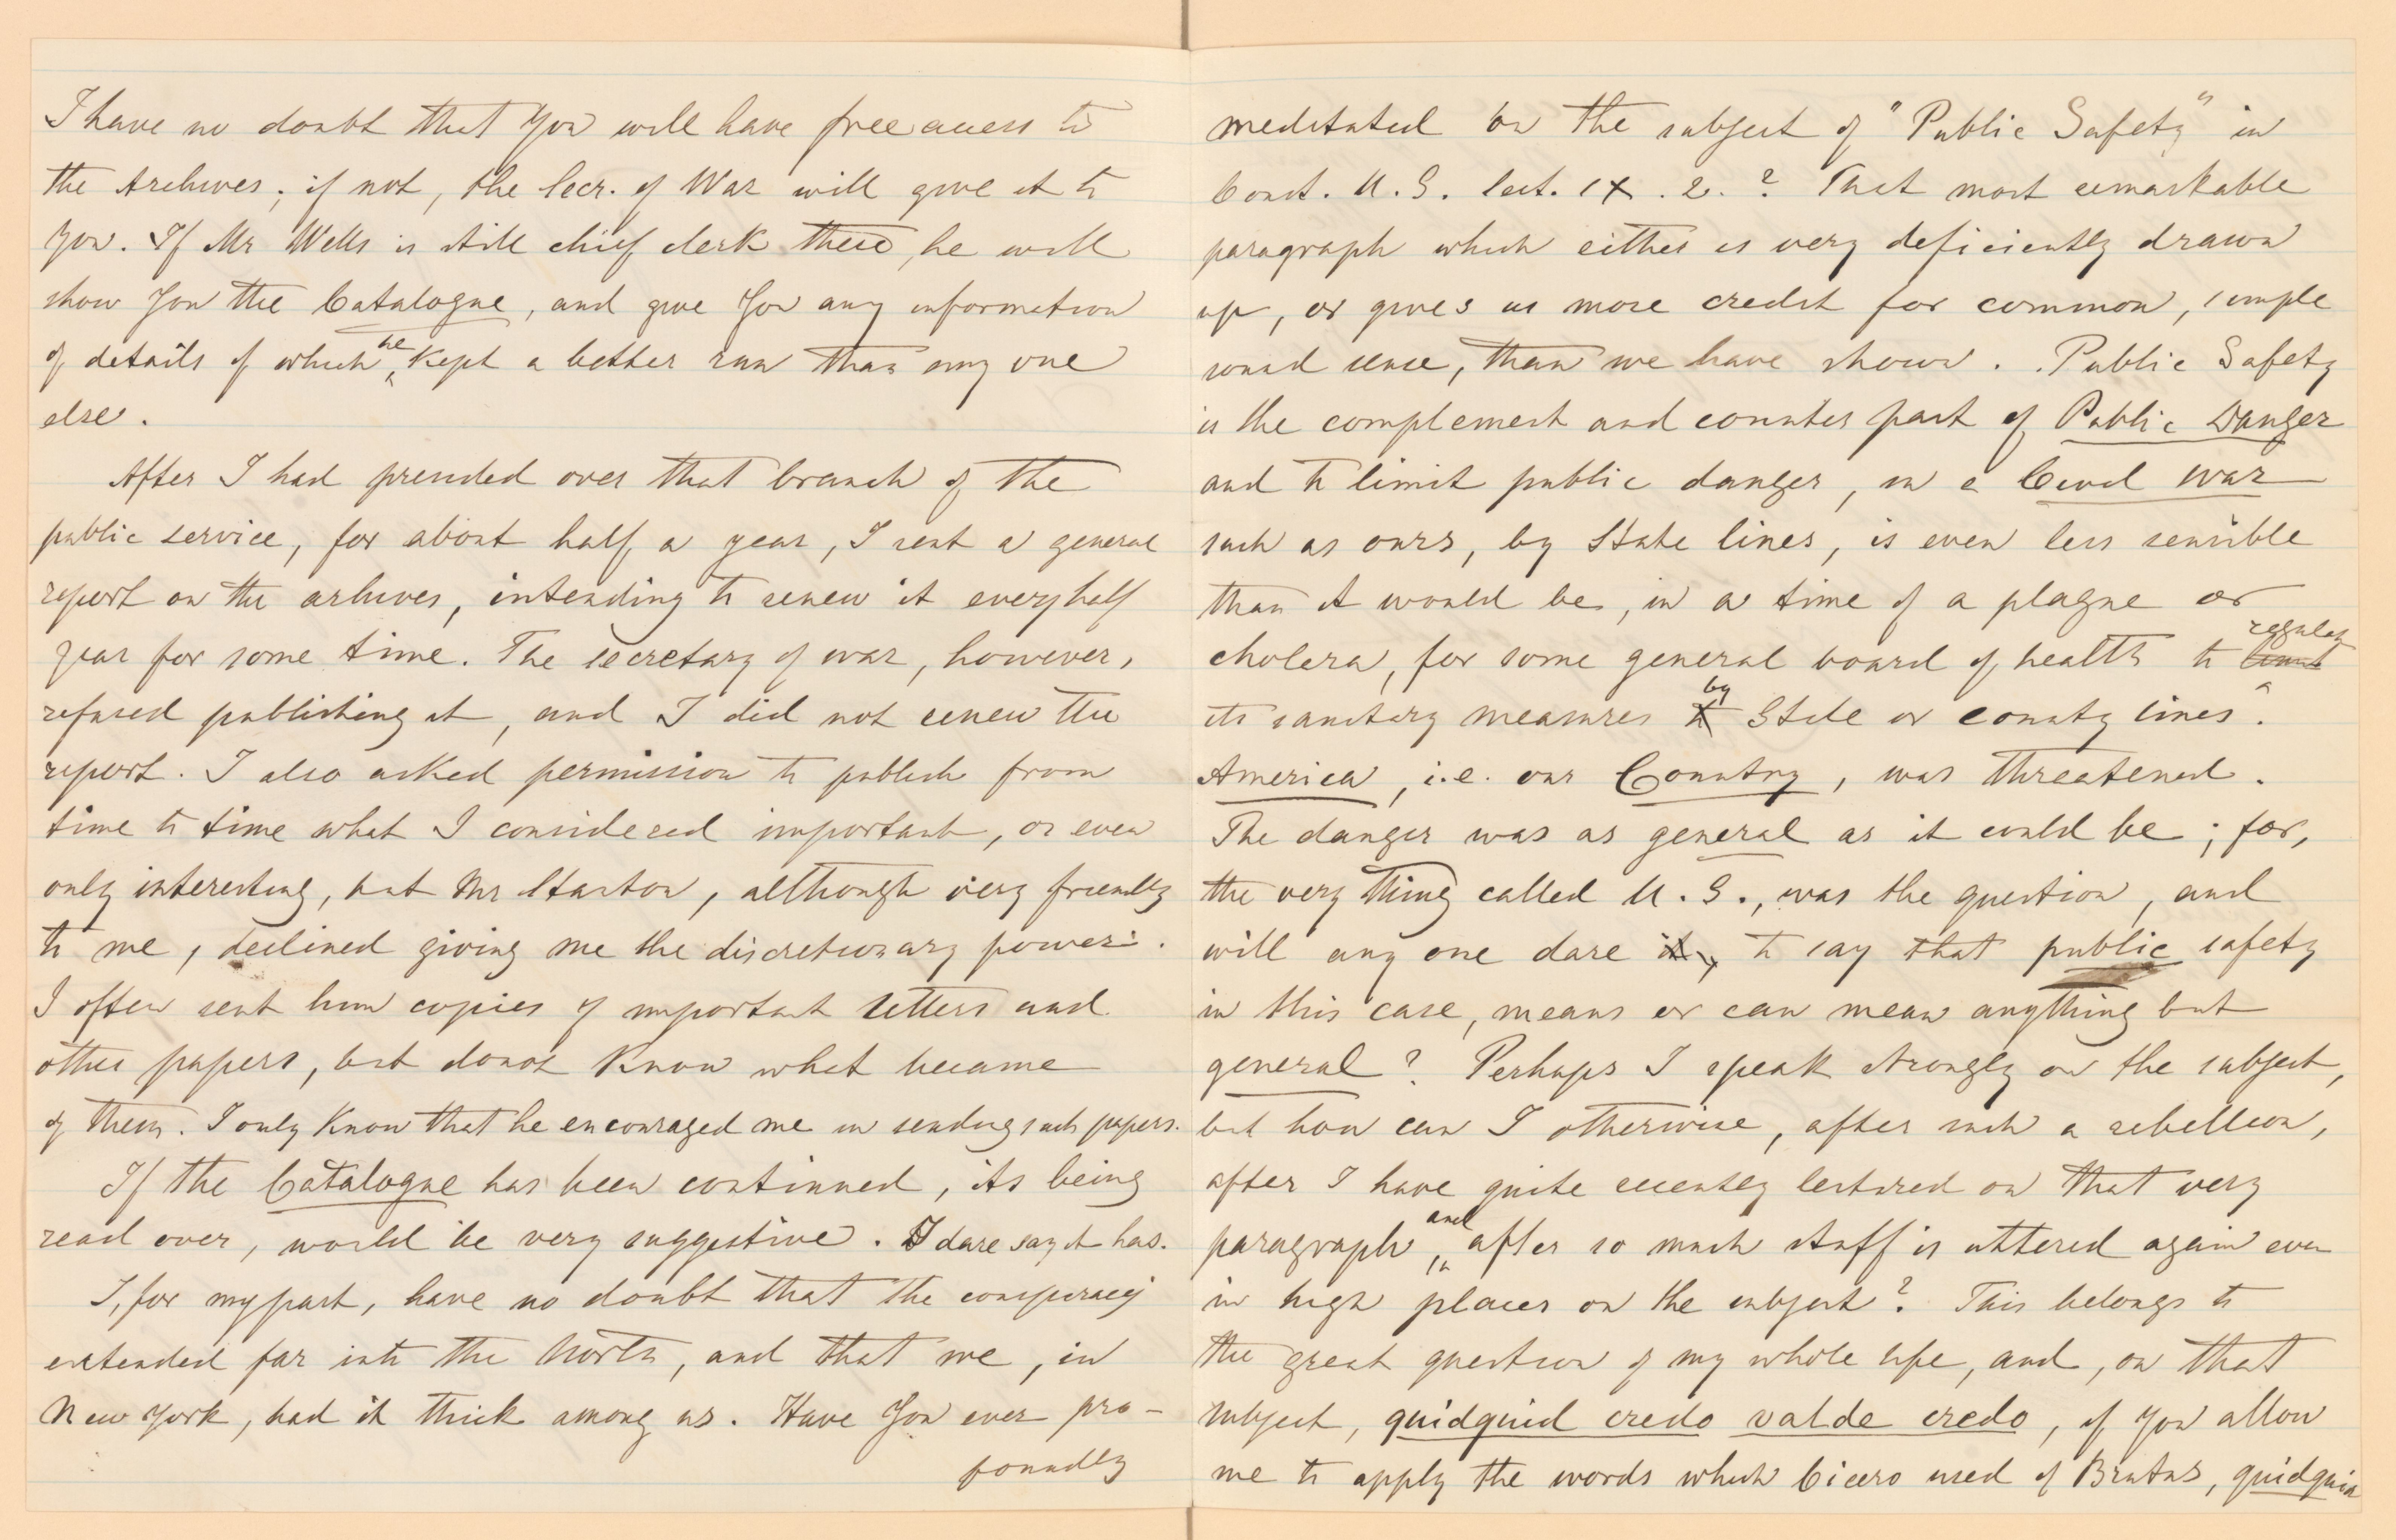 I have no doubt that You will have free access to
the Archives; if not, the Secr. of War will give it to
You. If Mr Wells is still chief clerk there, he will
show You the Catalogue, and give You any information
of details of which he kept a better run than any one
else.
After I had presided over that branch of the
public service, for about half a year, I sent a general
report on the arhives, intending to renew it every half
year for some time. The secretary of war, however,
refused publishing it, and I did not renew the
report. I also asked permission to publish from
time to time what I considered important, or even
only interesting, but Mr Stanton, although very friendly
to me, declined giving me the discretionary power.
I often sent him copies of important letters and
other papers, but donot know what became
of them. I only know that he encouraged me in sending such papers.
If the Catalogue has been continued, its being
read over, would be very suggestive. I dare say it has.
I, for my part, have no doubt that the conspiracy
extended far into the North, and that we, in
New York, had it thick among us. Have You ever pro-
foundly
meditated on the subject of "Public Safety" in
Const. U.S. Sect. IX. 2.? That most remarkable
paragraph which either is very deficiently drawn
up, or gives us more credit for common, simple
sound sense, than we have shown. Public Safety
is the complement and counter part of Public Danger
and to limit public danger, in a Civil War
such as ours, by State lines, is even less sensible
than it would be, in a time of a plague or
cholera, for some general board of health to limit regulate
its sanitary measures to by State or county lines.
America, i.e. our Country, was threatened.
The danger was as general as it could be; for,
the very thing called U.S., was the question, and
will any one dare it, to say that public safety
in this case, means or can mean anything but
general? Perhaps I speak strongly on the subject,
but how can I otherwise, after such a rebellion,
after I have quite recently lectured on that very
paragraph, and after so much stuff is uttered again even
in high places on the subject? This belongs to
the great question of my whole life, and, on that
subject, quidquid credo valde credo, if You allow
me to apply the words which Cicero used of Brutus, quidquid